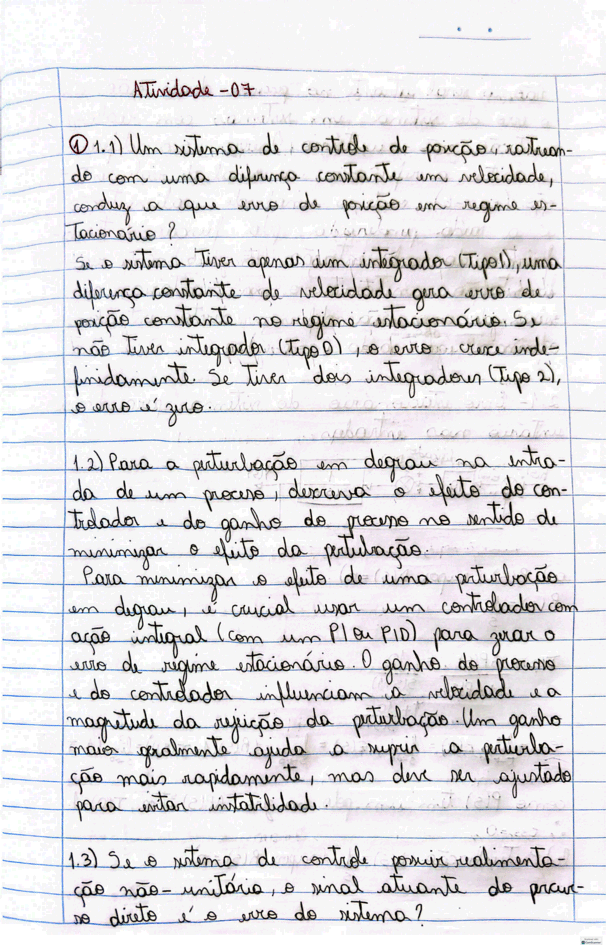 Atividade - 07
① 1.1) Um sistema de controle de posição, rastrean-
do com uma diferença constante em velocidade,
conduz a que erro de posição em regime es-
tacionário?
Se o sistema tiver apenas um integrador (Tipo 1), uma
diferença constante de velocidade gera erro de
posição constante no regime estacionário. Se
não tiver integrador (tipo 0), o erro cresce inde-
finidamente. Se tiver dois integradores (Tipo 2),
o erro é zero.
1.2) Para a perturbação em degrau na entra-
da de um processo, descreva o efeito do con-
trolador e do ganho do processo no sentido de
minimizar o efeito da pertubação.
Para minimizar o efeito de uma perturbação
em degrau, é crucial usar um controlador com
ação integral (com um PI ou PID) para zerar o
erro de regime estacionário. O ganho do processo
e do controlador influenciam a velocidade e a
magnetude da rejeição da perturbação. Um ganho
maior geralmente ajuda a suprir a perturba-
ção mais rapidamente, mas deve ser ajustado
para evitar instabilidade.
1.3) Se o sistema de controle possuir realimenta-
ção não-unitária, o sinal atuante do percur-
so direto é o erro do sistema?